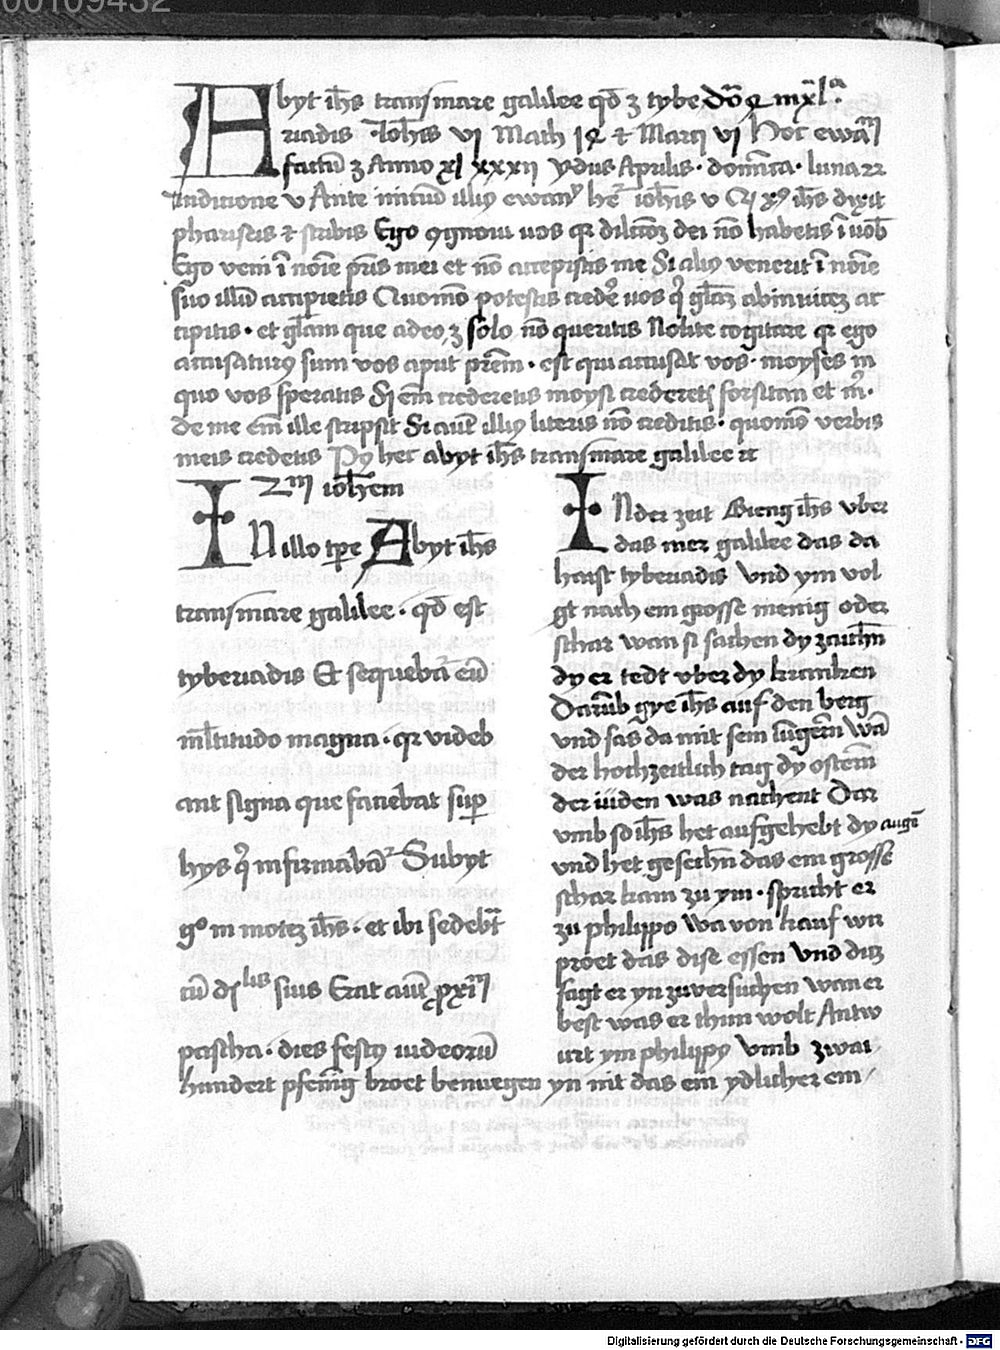 00109432
Abyt ih̅s transmare galilee qd̅ ʒ tybe
riadis · Joh̅is vi Math 14 ⁊ Marci vi Hoc ewa̅
factu̅ ʒ Anno xl xxxij ydus Aprilis · dom̅ica · luna 22
Inditione v Ante initiu̅ illiꝯ ewany̅ he̅ ioh̅is v Cu̅ xꝯ ih̅s dixit
phariseis ⁊ scribis Ego ꝯgnoui uos qꝛ dilico̅ʒ dei no̅ habetis i̅ uob̅
Ego veni i̅ no̅ie p̅ris mei et no̅ accepistis me Si aliꝯ venerit i̅ no̅ie
suo illu̅ accipietis Quomo̅ potestis crede̅ uos q̇ gl̅aʒ abinuiceʒ ac
cipitis · et gl̅am que adeo ʒ solo no̅ queritis Nolite cogitare qꝛ ego
accusaturꝯ sum vos aput pr̅em · est qui accusat vos · moyses in
quo vos speratis Si em̅ crederetis moysi crederetis forsitan et m̅ ·
de me em̅ ille scripsit Si aut̅e illiꝯ literis no̅ creditis · quomo̅ verbis
meis credetis Pꝯ hec abyt ih̅s transmare galilee ⁊c
2m ioh̅em
IN illo tp̅e Abyt ih̅s
transmare galilee · qd̅ est
tyberiadis Et sequeba̅ eu̅
ml̅titudo magna · qꝛ videb
ant signa que faciebat suꝑ
hys q̇ infirmaba̅ Subyt
gᵒ in moteʒ ih̅s · et ibi sedeb̅t
cu̅ dis̅lis suis Erat aut̅e ꝓxi̅m
pascha · dies festꝯ iudeoru̅
IN der zeit Gieng ih̅s vber
das mer galilee das da
haist tyberiadis Vnd ym vol
gt nach ein grosse menig oder
schar wan si sachen dy zaich̅n
dy er tedt vber dy krancken
Daru̅b gye ih̅s auf den berg
vnd sas da mit sein iu̅gern wa̅
der hochzeitlich tag dy̅ ostern̅
der iüden was nachent Dar
vmb so ih̅s het aufgehebt dy auge̅
vnd het geseih̅n das ein grosse
schar kam zu ym · spricht er
zu philippo wa von kauf wir
proet das dise essen Vnd diz
sagt er yn zu versuchen wan er
best was er thun wolt Antw
urt ym philippꝯ Vmb zwai
hundert pfenn̅ig broet benuegen yn nit das ein ydlicher ein
Digitalisierung gefördert durch die Deutsche Forschungsgemeinschaft - DFG